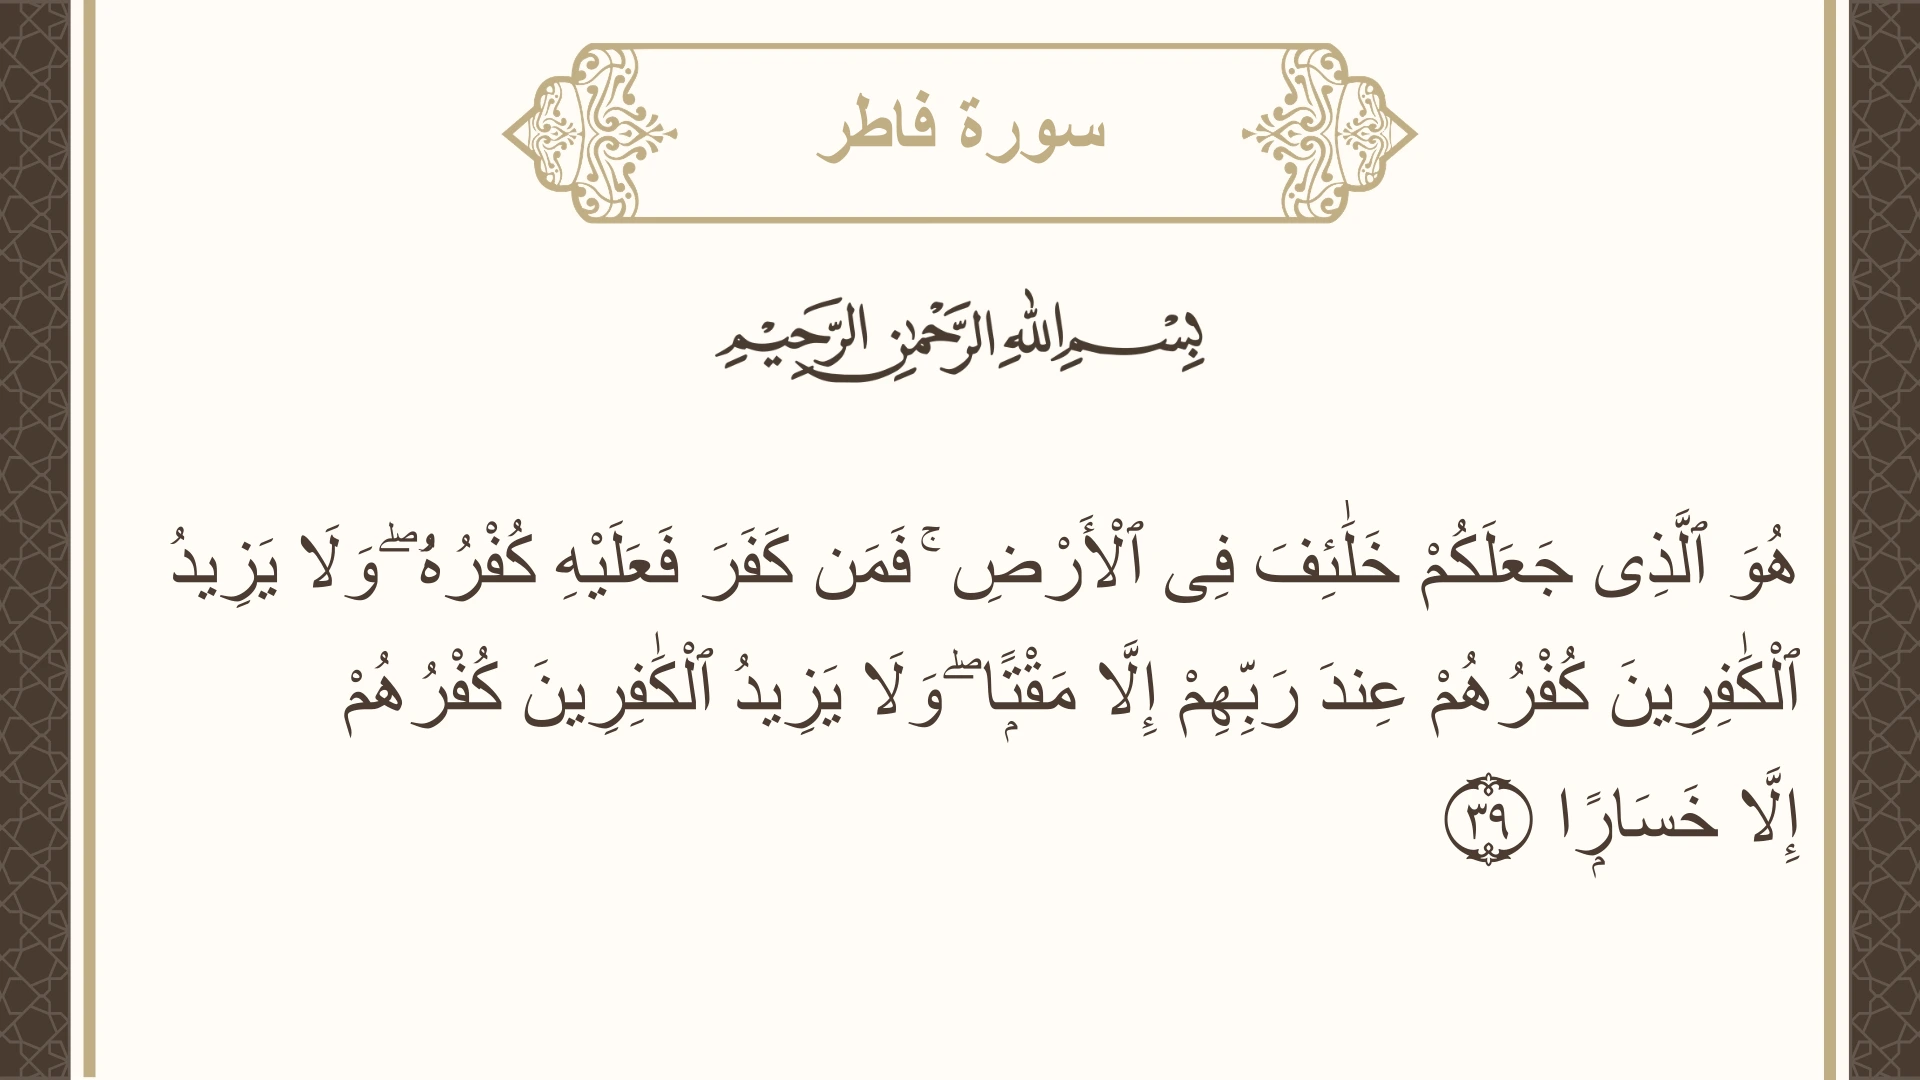 سورة فاطر
بِسْمِ اللهِ الرَّحْمٰنِ الرَّحِيْمِ
هُوَ ٱلَّذِى جَعَلَكُمْ خَلَٰٓئِفَ فِى ٱلْأَرْضِ ۚ فَمَن كَفَرَ فَعَلَيْهِ كُفْرُهُۥ ۖ وَلَا يَزِيدُ
ٱلْكَٰفِرِينَ كُفْرُهُمْ عِندَ رَبِّهِمْ إِلَّا مَقْتًۭا ۖ وَلَا يَزِيدُ ٱلْكَٰفِرِينَ كُفْرُهُمْ
إِلَّا خَسَارًۭا ٣٩